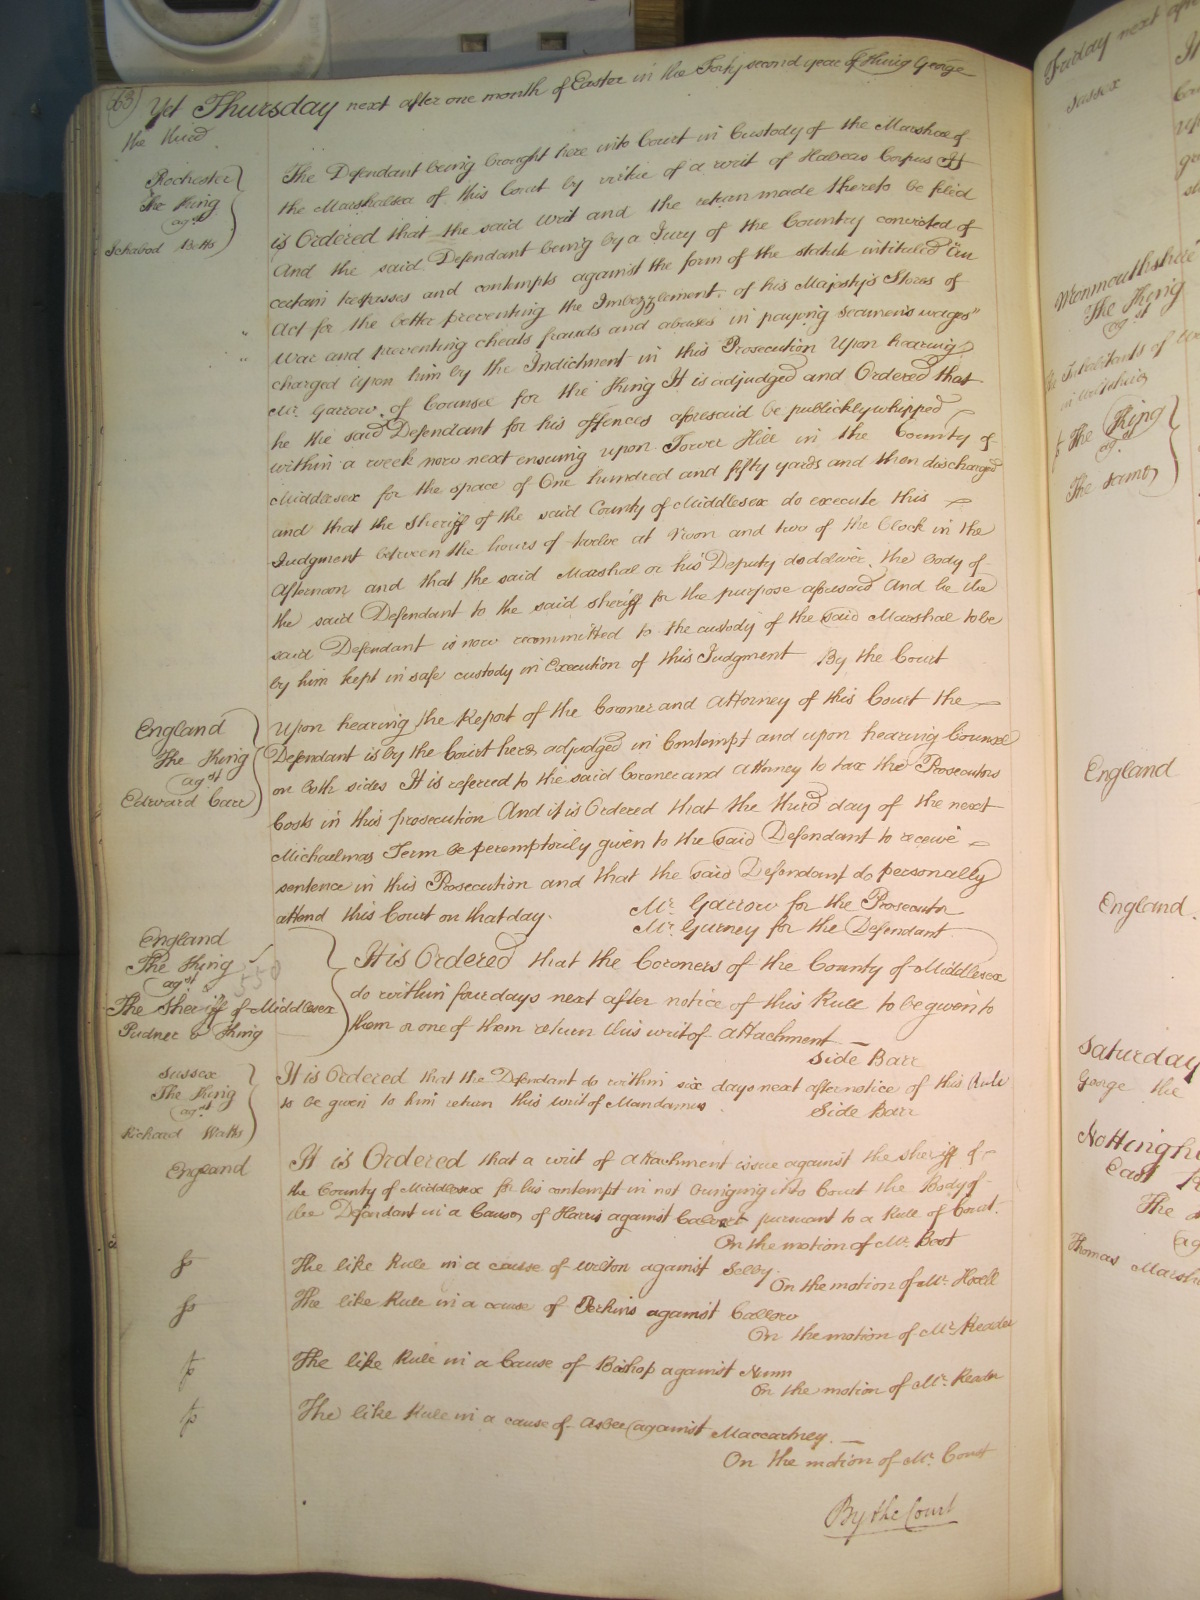 63) Yet Thursday next after one month of Easter in the Forty second year of King George
the third
Rochester
The King
agst
Ichabod Betts
The Defendant being brought here into Court in Custody of the Marshal of
the Marshalsea of this Court by virtue of a writ of Habeas Corpus It
is Ordered that the said Writ and the return made thereto be filed
And the said Defendant being by a Jury of the Country convicted of
certain trespasses and contempts against the form of the statute intituled "An
" Act for the better preventing the Imbezzlement of his Majesty's Stores of
" War and preventing cheats frauds and abuses in paying seamen's wages"
charged upon him by the Indictment in this Prosecution Upon hearing
Mr. Garrow of Counsel for the King It is adjudged and Ordered that
he the said Defendant for his offences aforesaid be publickly whipped
within a week now next ensuing upon Tower Hill in the County of
Middlesex for the space of One hundred and fifty yards and then discharged
and that the Sheriff of the said County of Middlesex do execute this
Judgment between the hours of twelve at Noon and two of the Clock in the
afternoon and that the said Marshal or his Deputy do deliver the body of
the said Defendant to the said Sheriff for the purpose aforesaid And he the
said Defendant is now recommitted to the custody of the said Marshal to be
by him kept in safe custody in Execution of this Judgment By the Court
England
The King
agst
Edward Carr
Upon hearing the Report of the Coroner and Attorney of this Court the
Defendant is by the Court here adjudged in Contempt and upon hearing Counsel
on both sides It is referred to the said Coroner and Attorney to tax the Prosecutors
Costs in this prosecution And it is Ordered that the third day of the next
Michaelmas Term be peremptorily given to the said Defendant to receive
sentence in this Prosecution and that the said Defendant do personally
attend this Court on that day.
Mr. Garrow for the Prosecutor
Mr. Gurney for the Defendant
England
The King
agst
The Sheriff of Middlesex
Pudner & King
550
It is Ordered that the Coroners of the County of Middlesex
do within four days next after notice of this Rule to be given to
them or one of them return this writ of Attachment
Side Barr
Sussex
The King
agst
Richard Watts
It is Ordered that the Defendant do within six days next after notice of this Rule
to be given to him return this writ of Mandamus
Side Barr
England
It is Ordered that a writ of Attachment issue against the Sheriff of
the County of Middlesex for his contempt in not bringing into Court the Body of
the Defendant in a Cause of Harris against pursuant to a Rule of Court.
On the motion of Mr. Best
The like Rule in a cause of Wilson against Selby.
On the motion of Mr. Hoell
The like Rule in a cause of Perkins against Callow
On the motion of Mr. Reader
The like Rule in a Cause of Bishop against Nunn
On the motion of Mr. Reader
The like Rule in a cause of against Maccartney.
On the motion of Mr. Const
By the Court
Friday next after
Sussex
Monmouthshire
The King
agst
Inhabitants of
The King
agst
The same
England
England
Saturday
George the
The
Thomas